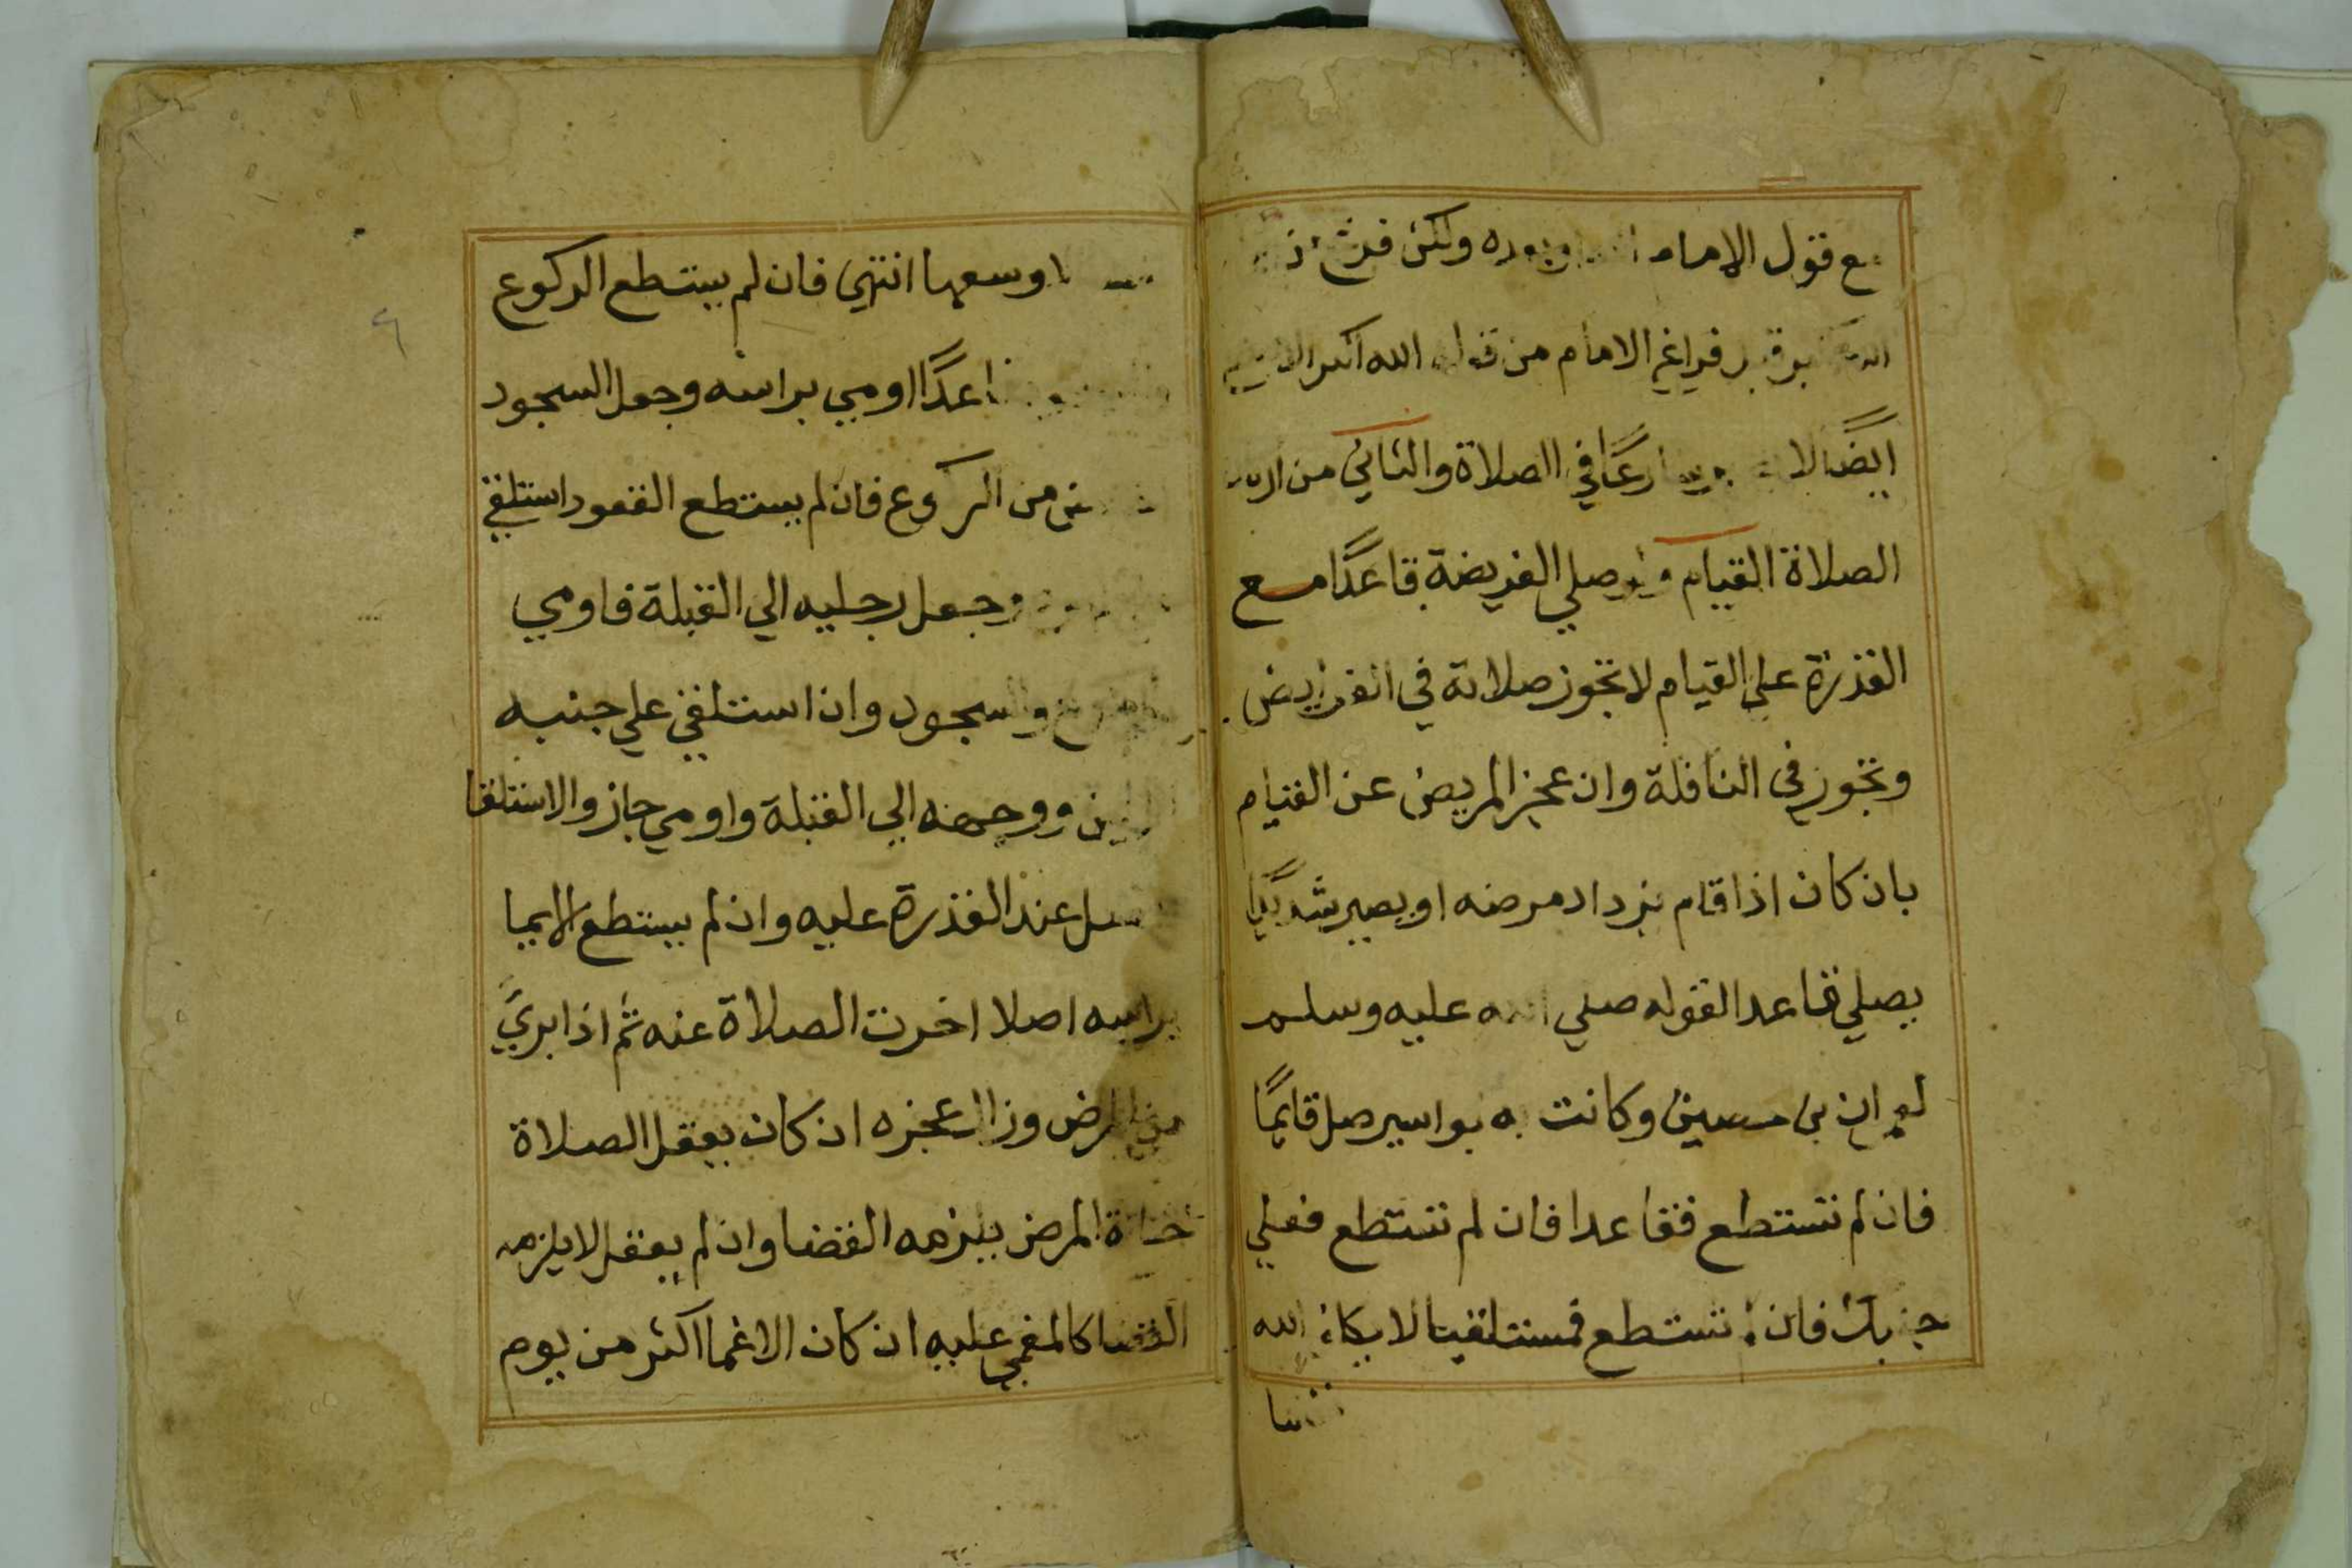 مع قول الامام او بعده ولكن فرغ
التكبير قبل فراغ الامام من قوله الله اكبر
ايضًا لا شارعًا في الصلاة والثاني من
الصلاة القيام ولو صلي الفريضة قاعدًا مع
القدرة علي القيام لا تجوز صلاته في الفرايض
وتجوز في النافلة وان عجز المريض عن القيام
بان كان اذا قام يزداد مرضه او يصير
يصلي قاعدا لقوله صلي الله عليه وسلم
لعمران بن حصين وكانت به بواسير صل قايمًا
فان لم تستطع فقاعدا فان لم تستطع فعلي
جنبك فان لم تستطع فمستلقيا لا يكلف الله
نفسا
وسعها انتهي فان لم يستطع الركوع
قاعدًا اومي براسه وجعل السجود
من الركوع فان لم يستطع القعود استلقي
وجعل رجليه الي القبلة فاومي
والسجود وان استلقي علي جنبه
ووجهه الي القبلة واومي جاز والاستلقا
عند القدرة عليه وان لم يستطع الايما
براسه اصلا اخرت الصلاة عنه ثم اذا بريَ
من المرض وزال عجزه ان كان يعقل الصلاة
المرض يلزمه القضا وان لم يعقل لا يلزمه
القضا كالمغمي عليه ان كان الاغما اكثر من يوم